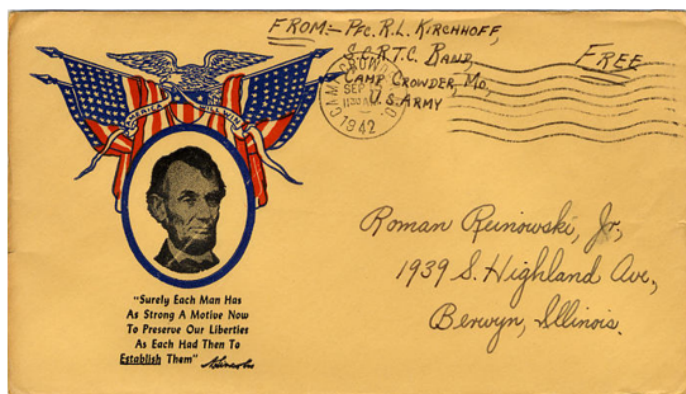 FROM:- Pfc. R.L. KIRCHHOFF,
S.C.R.T.C. BAND,
CAMP CROWDER, MO.
U.S. ARMY
FREE
CAMP CROWDER, MO.
SEP
1130 A
1942
AMERICA WILL WIN
Roman Reinowski, Jr.,
1939 S. Highland Ave,
Berwyn, Illinois.
"Surely Each Man Has
As Strong A Motive Now
To Preserve Our Liberties
As Each Had Then To
Establish Them" A. Lincoln